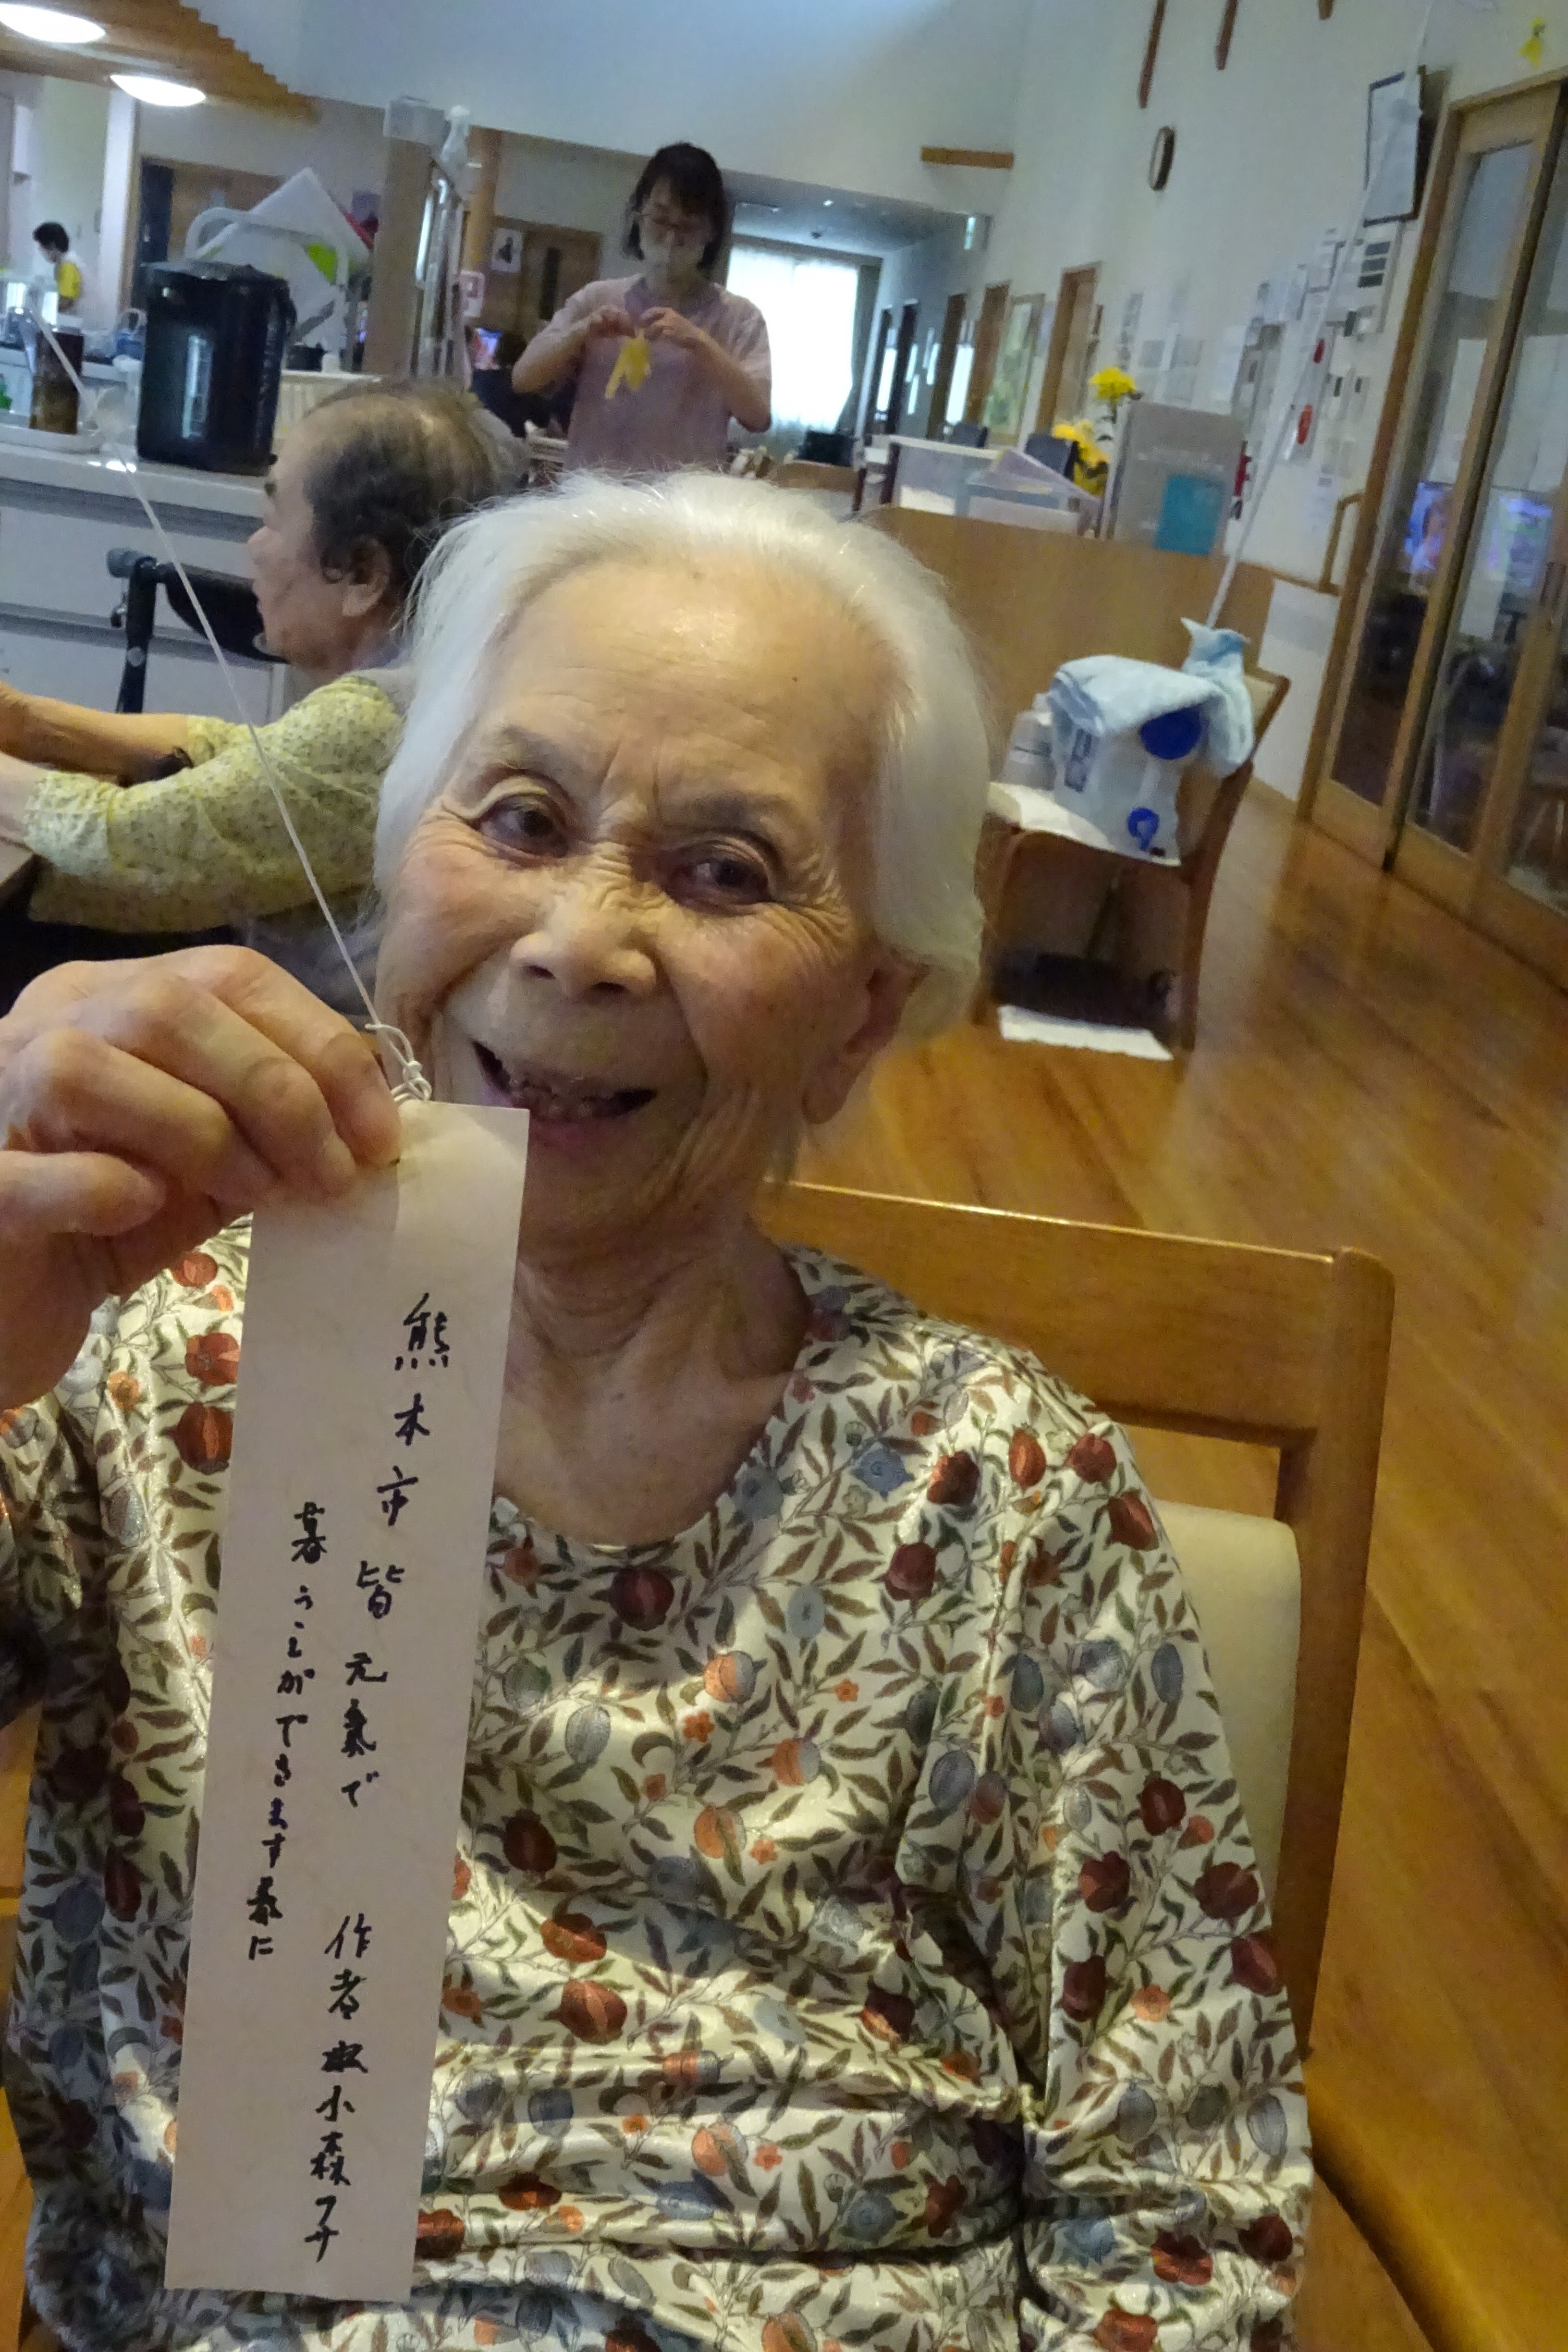 熊本市皆元氣で 作者 小森フサ
暮うことができます様に